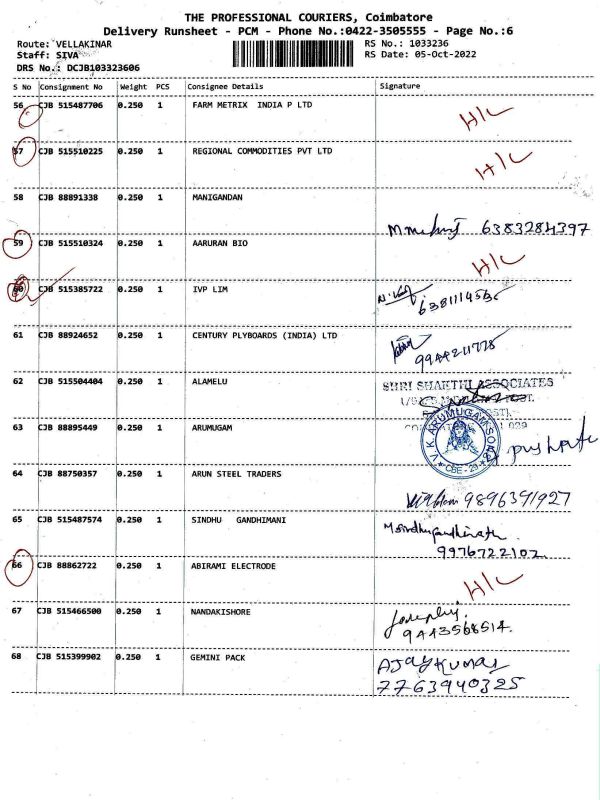 THE PROFESSIONAL COURIERS, Coimbatore
Delivery Runsheet - PCM - Phone No.:0422-3505555 - Page No.:6
Route: VELLAKINAR
RS No.: 1033236
Staff: SIVA
RS Date: 05-Oct-2022
DRS No.: DCJB103323606
S No Consignment No Weight PCS Consignee Details Signature
56 CJB 515487706 0.250 1 FARM METRIX INDIA P LTD H/L
57 CJB 515510225 0.250 1 REGIONAL COMMODITIES PVT LTD H/L
58 CJB 88891338 0.250 1 MANIGANDAN
6383284397
59 CJB 515510324 0.250 1 AARURAN BIO H/L
60 CJB 515385722 0.250 1 IVP LIM
61 CJB 88924652 0.250 1 CENTURY PLYBOARDS (INDIA) LTD
9944211778
62 CJB 515504404 0.250 1 ALAMELU SHRI SHAKTHI ASSOCIATES
63 CJB 88895449 0.250 1 ARUMUGAM
V.K. ARUMUGAM SONS
CBE - 29
64 CJB 88750357 0.250 1 ARUN STEEL TRADERS
9896391927
65 CJB 515487574 0.250 1 SINDHU GANDHIMANI
9976722102
66 CJB 88862722 0.250 1 ABIRAMI ELECTRODE H/L
67 CJB 515466500 0.250 1 NANDAKISHORE
9443568514.
68 CJB 515399902 0.250 1 GEMINI PACK AJAYKUMAR
7763940325